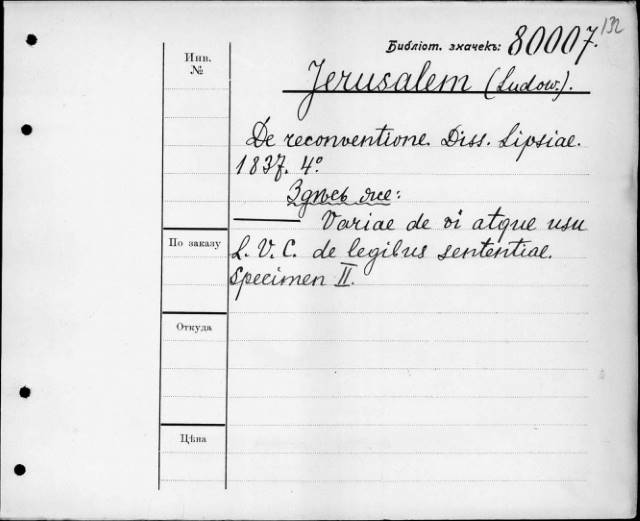 132
Библіот. значекъ: 80007.
Инв.
№
Jerusalem (Ludow.).
De reconventione. Diss. Lipsiae.
1837. 4°.
Здѣсь же:
——— Variae de vi atque usu
По заказу
L. V. C. de legibus sententiae.
Specimen II.
Откуда
Цѣна